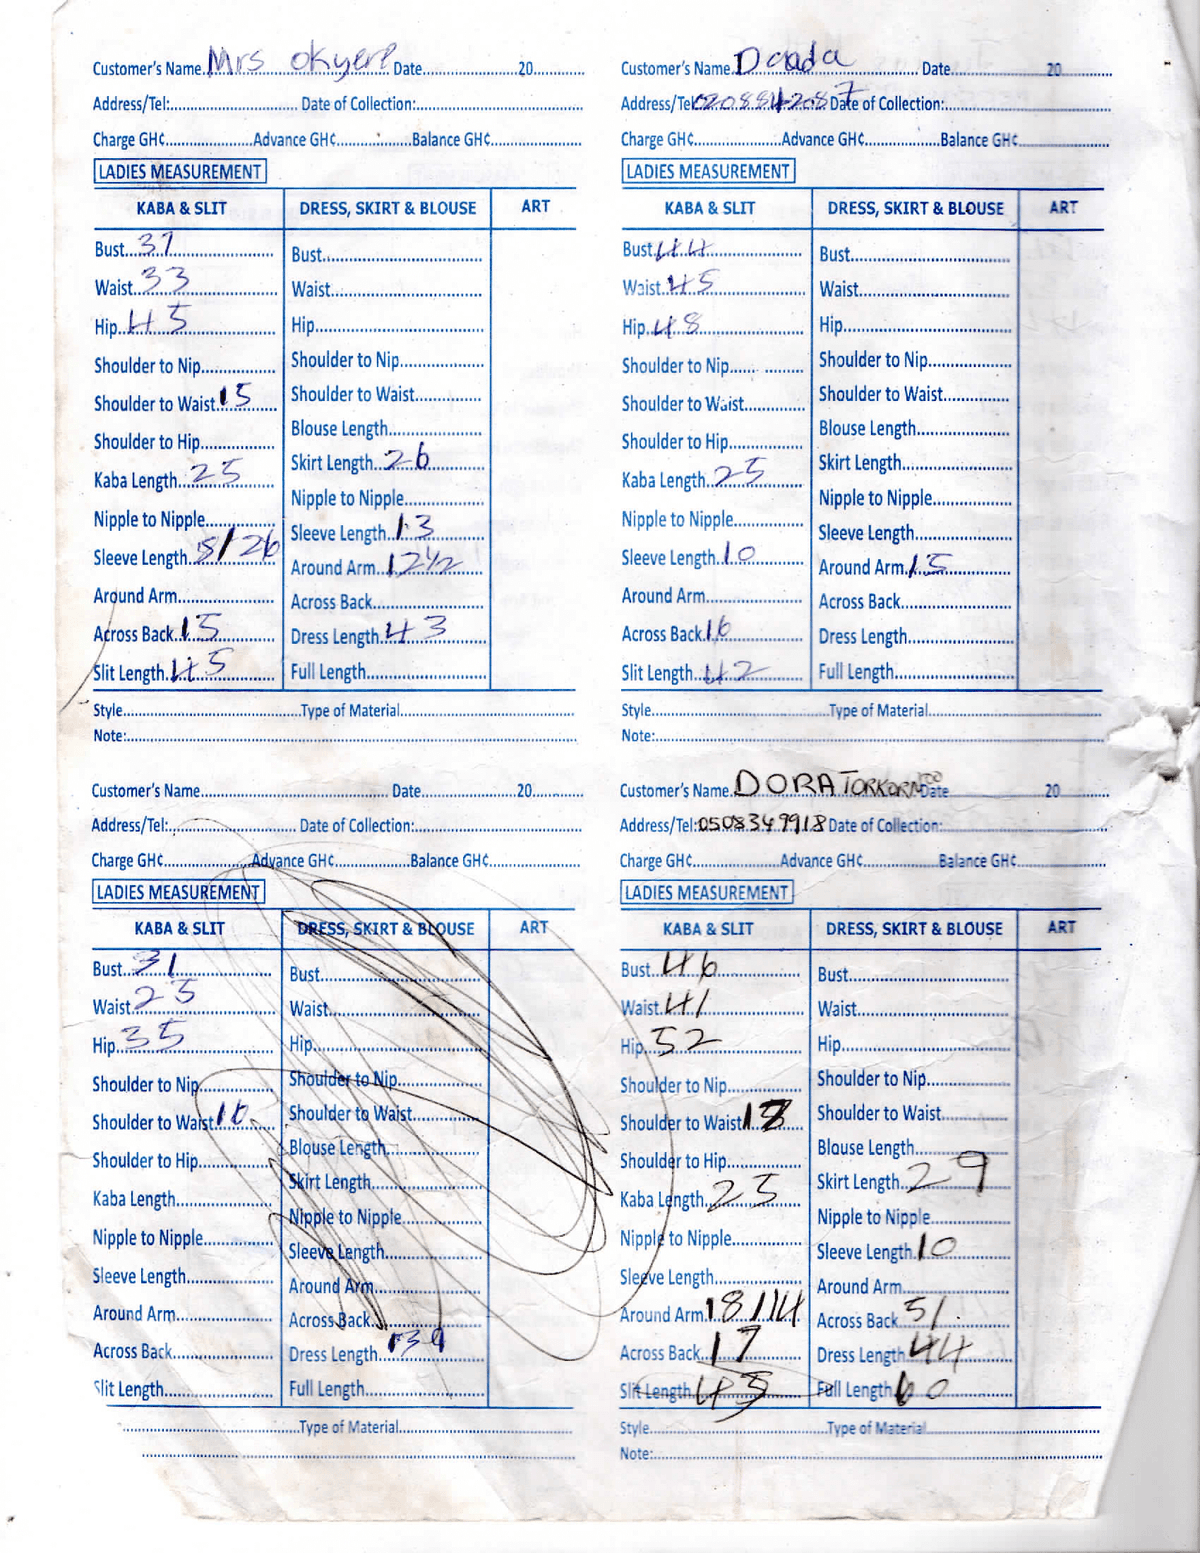 Customer's Name Mrs Okyere Date 20
Address/Tel: Date of Collection:
Charge GH¢ Advance GH¢ Balance GH¢
LADIES MEASUREMENT
KABA & SLIT DRESS, SKIRT & BLOUSE ART
Bust 37 Bust
Waist 33 Waist
Hip 45 Hip
Shoulder to Nip Shoulder to Nip
Shoulder to Waist 15 Shoulder to Waist
Shoulder to Hip Blouse Length
Kaba Length 25 Skirt Length 26
Nipple to Nipple Nipple to Nipple
Sleeve Length 5/26 Sleeve Length 13
Around Arm Around Arm 12 1/2
Across Back 15 Across Back
Slit Length 45 Dress Length 43
Full Length
Style Type of Material
Note:
Customer's Name Daada Date 20
Address/Tel: 0208842087 Date of Collection:
Charge GH¢ Advance GH¢ Balance GH¢
LADIES MEASUREMENT
KABA & SLIT DRESS, SKIRT & BLOUSE ART
Bust 44 Bust
Waist 45 Waist
Hip 48 Hip
Shoulder to Nip Shoulder to Nip
Shoulder to Waist Shoulder to Waist
Shoulder to Hip Blouse Length
Kaba Length 25 Skirt Length
Nipple to Nipple Nipple to Nipple
Sleeve Length 10 Sleeve Length
Around Arm Around Arm 15
Across Back 16 Across Back
Slit Length 42 Dress Length
Full Length
Style Type of Material
Note:
Customer's Name Date 20
Address/Tel: Date of Collection:
Charge GH¢ Advance GH¢ Balance GH¢
LADIES MEASUREMENT
KABA & SLIT DRESS, SKIRT & BLOUSE ART
Bust 31 Bust
Waist 25 Waist
Hip 35 Hip
Shoulder to Nip Shoulder to Nip
Shoulder to Waist 16 Shoulder to Waist
Shoulder to Hip Blouse Length
Kaba Length Skirt Length
Nipple to Nipple Nipple to Nipple
Sleeve Length Sleeve Length
Around Arm Around Arm
Across Back Across Back
Slit Length Dress Length 39
Full Length
Type of Material
Customer's Name DORA TORKORNOO Date 20
Address/Tel: 0508349918 Date of Collection:
Charge GH¢ Advance GH¢ Balance GH¢
LADIES MEASUREMENT
KABA & SLIT DRESS, SKIRT & BLOUSE ART
Bust 46 Bust
Waist 41 Waist
Hip 52 Hip
Shoulder to Nip Shoulder to Nip
Shoulder to Waist Shoulder to Waist
Shoulder to Hip Blouse Length
Kaba Length 25 Skirt Length 29
Nipple to Nipple Nipple to Nipple
Sleeve Length Sleeve Length 10
Around Arm 18/14 Around Arm
Across Back 17 Across Back 51
Slit Length 45 Dress Length 44
Full Length 60
Style Type of Material
Note: